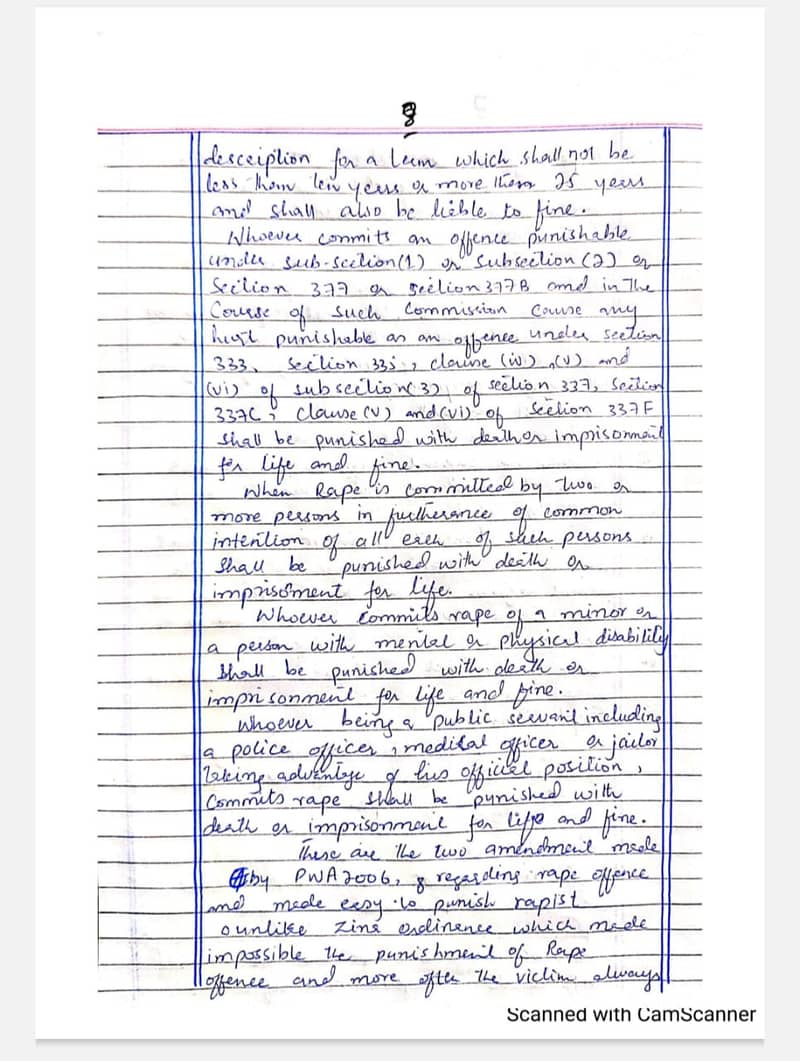 8
desceiption for a term which shall not be
less then ten years or more then 25 years
and shall also be lieble to fine.
Whoever commits an offence punishable
under sub-section(1) or subsection(2) or
Section 377 or section 377B and in the
Course of such Commission Cause any
hurt punishable as an offence under section
333, section 335, clause (iv), (v) and
(vi) of subsection(3), of section 337, Section
337C, Clause (v) and (vi) of Section 337F
shall be punished with death or imprisonment
for life and fine.
When Rape is committed by two or
more persons in furtherance of common
intention of all each of such persons
shall be punished with death or
imprisonment for life.
Whoever Commits rape of a minor or
a person with mental or physical disability
shall be punished with death or
imprisonment for life and fine.
Whoever being a public servant including
a police officer, medical officer or jailor
Taking advantage of his official position,
Commits rape shall be punished with
death or imprisonment for life and fine.
These are the two amendment made
by PWA 2006, regarding rape offence
and made easy to punish rapist
unlike Zina ordinence which made
impossible the punishment of Rape
offence and more often the victim always
Scanned with CamScanner